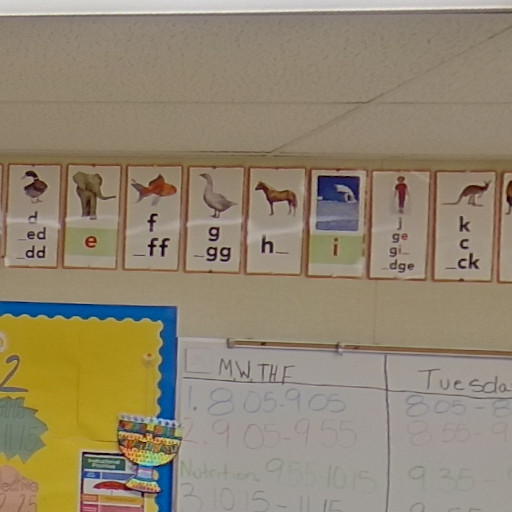 d
_ed
_dd
e
f
_ff
g
_gg
h_
i
j
ge
gi_
_dge
k
c
_ck
2
M.W.TH.F
1. 8 05-9 05
2. 9 05-9 55
Nutrition 9 55-10 15
3. 10 15-11 15
Tuesda
8 05-8
8 55-9
9 35